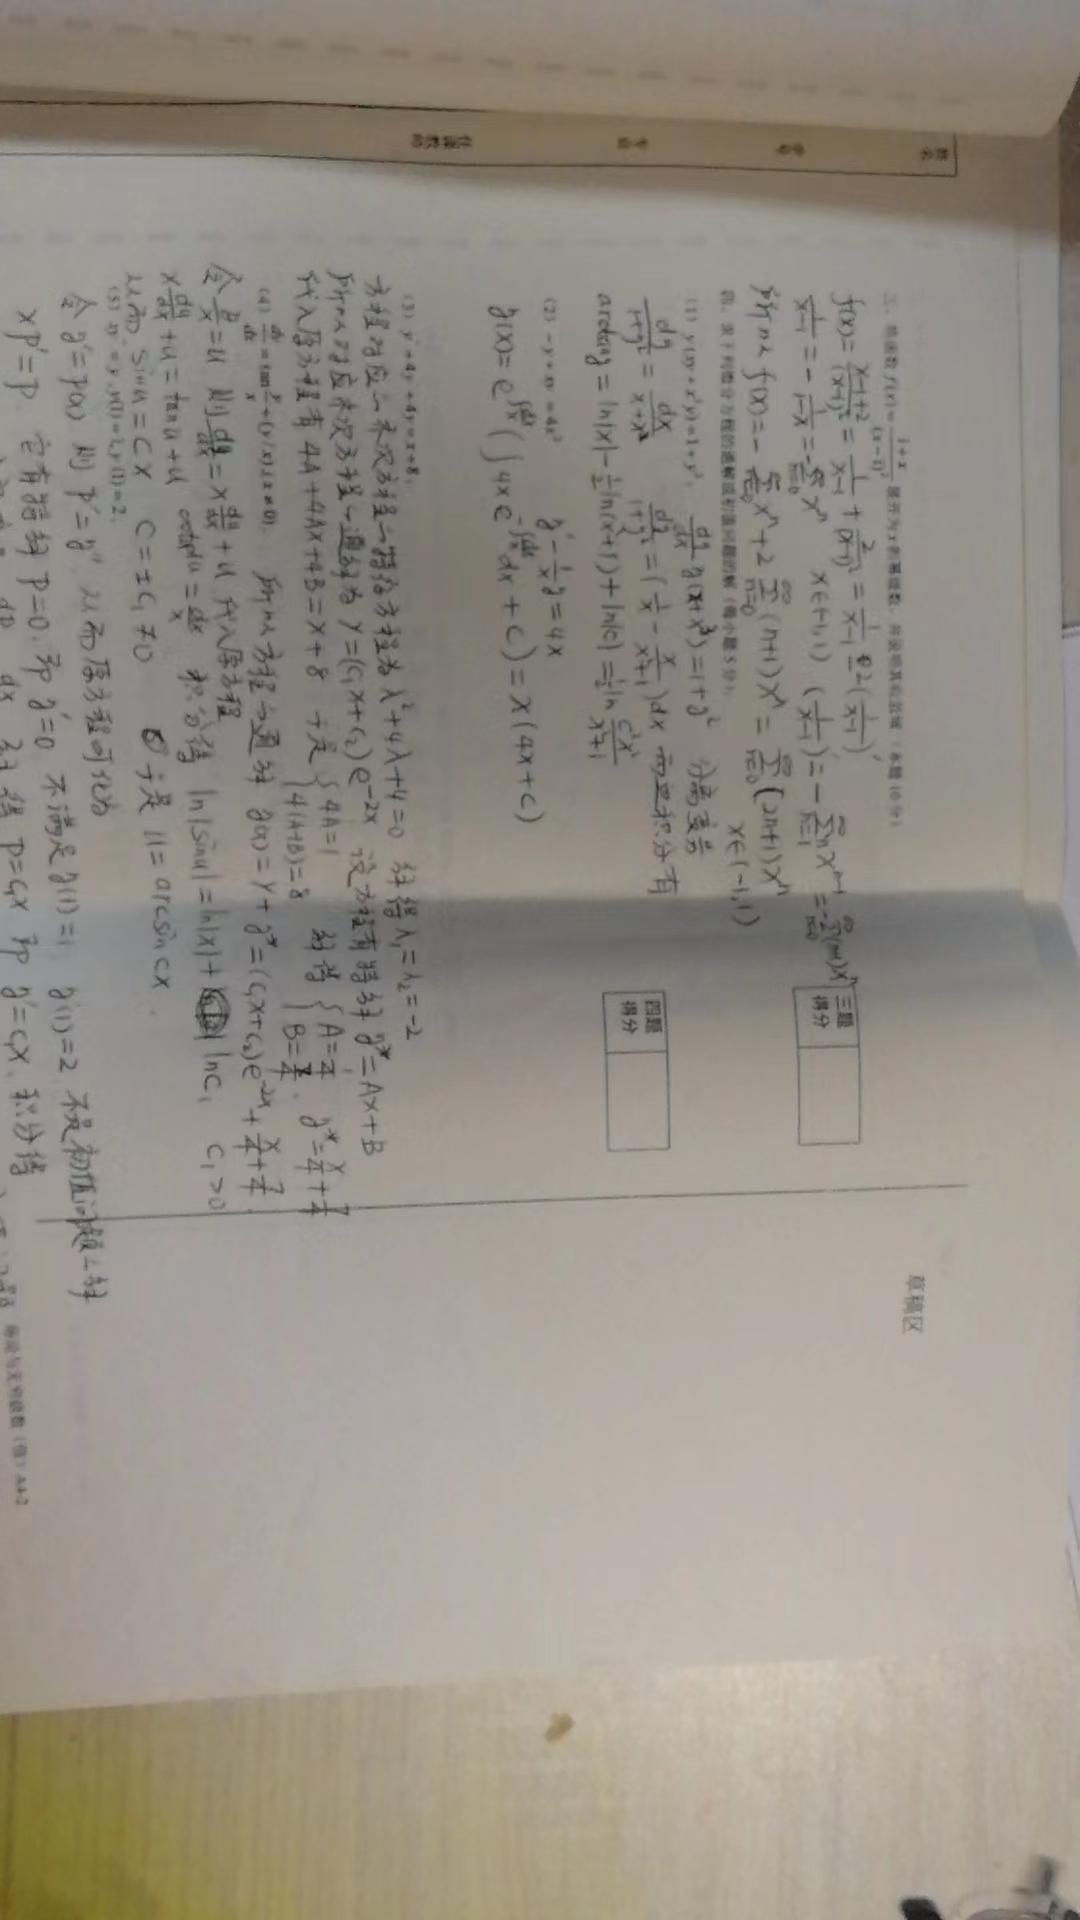 姓名
学号
专业
任课教师
草稿区
三、将函数 f(x)=(1+x)/(x-1)² 展开为x的幂级数，并说明其收敛域（本题10分）
f(x)= (x-1+2)/(x-1)² = 1/(x-1) + 2/(x-1)² = 1/(x-1) - 2(1/(x-1))′
1/(x-1) = - 1/(1-x) = -∑_{n=0}^∞ xⁿ x∈(-1,1) (1/(x-1))′ = - ∑_{n=1}^∞ n x^{n-1} = -∑_{n=0}^∞ (n+1)xⁿ
三题
得分
所以 f(x)=- ∑_{n=0}^∞ xⁿ + 2 ∑_{n=0}^∞ (n+1)xⁿ = ∑_{n=0}^∞ (2n+1)xⁿ
x∈(-1,1)
四、求下列微分方程的通解或初值问题的解（每小题5分）
(1) dy/dx y(x+x³)=1+y² 分离变量
dy/(1+y²) = dx/(x+x³) dy/(1+y²) = (1/x - x/(x²+1))dx 两边积分有
四题
得分
arctany = ln|x| - ½ln(x²+1) + ln|c| = ½ln c²x²/(x²+1)
(2) y′ - 1/x y = 4x
y(x)= e^{∫dx/x} (∫4x e^{-∫dx/x} dx + c) = x(4x+c)
(3) y″+4y′+4y=x+8；
方程对应的齐次方程的特征方程为 λ²+4λ+4=0 解得 λ₁=λ₂=-2
所以对应齐次方程的通解为 Y=(c₁x+c₂)e^{-2x} 设方程有特解 y*=Ax+B
代入原方程有 4A+4Ax+4B=x+8 于是 {4A=1 4(A+B)=8 解得 {A=1/4 B=7/4. y*=x/4+7/4
(4) dy/dx=tan y/x+(y/x),(x≠0)； 所以方程的通解 y(x)=Y+y*=(c₁x+c₂)e^{-2x}+x/4+7/4.
令 y/x=u 则 dy/dx=x du/dx+u 代入原方程
x du/dx+u=tanu+u cotudu=dx/x 积分得 ln|sinu|=ln|x|+ lnc₁ c₁>0
从而 sinu=cx c=±c₁≠0 于是 u=arcsincx.
(5) xy″=y′,y(1)=1,y′(1)=2；
令 y′=p(x) 则 p′=y″ 从而原方程可化为
xp′=p. 它有特解 p=0, 即 y′=0 不满足 y(1)=1 y′(1)=2 不是初值问题的解
dp dx 解得 p=c₁x 即 y′=c₁x, 积分得
A4-2